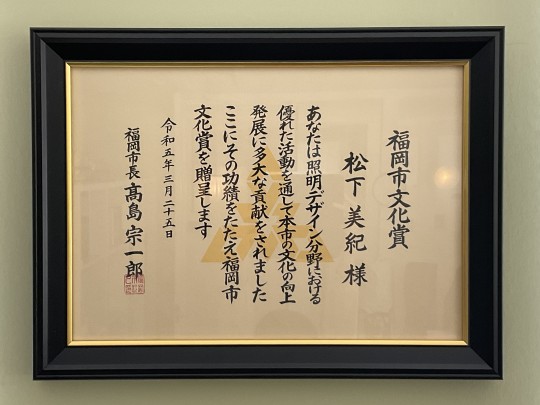 福岡市文化賞
松下美紀様
あなたは照明デザイン分野における
優れた活動を通して本市の文化の向上
発展に多大な貢献をされました
ここにその功績をたたえ福岡市
文化賞を贈呈します
令和五年三月二十五日
福岡市長 髙島宗一郎